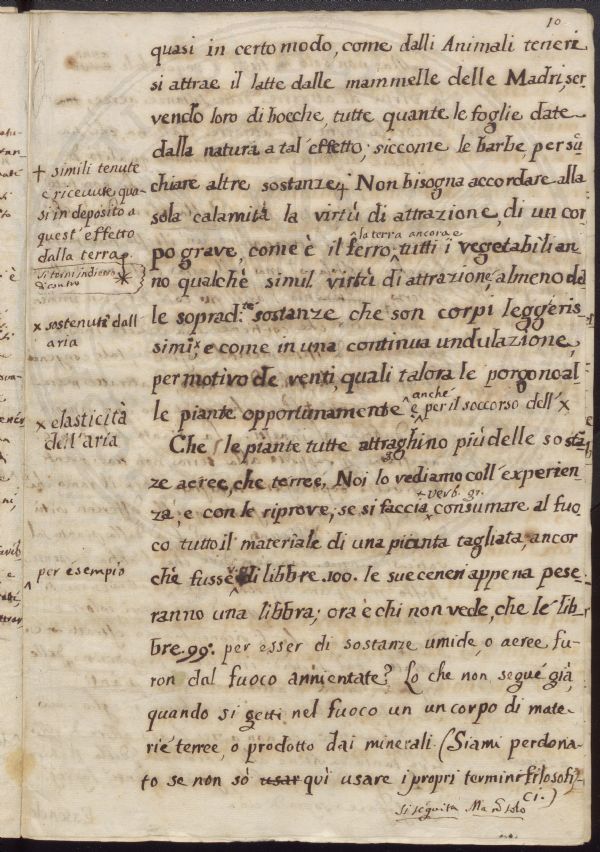 10
quasi in certo modo, come dalli Animali teneri
si attrae il latte dalle mammelle delle Madri, ser
vendo loro di bocche, tutte quante le foglie date
dalla natura a tal effetto; siccome le barbe, per su
chiare altre sostanze + Non bisogna accordare alla
sola calamità la virtù di attrazione, di un cor
la terra ancora e
po grave, come è il ferro, tutti i vegetabili an
no qualche simil virtù di attrazione, almeno del
le sopradte sostanze, che son corpi leggeris
simi x e come in una continua undulazione,
per motivo de venti, quali talora le porgono al
anche
le piante opportunamente e per il soccorso dell' x
Che le piante tutte attraghino più delle sostã
ze aeree, che terree, Noi lo vediamo coll' experien
+ verb. gr.
za, e con le riprove; se si faccia consumare al fuo
co tutto il materiale di una pianta tagliata, ancor
chè fusse di libbre .100. le sue ceneri appena pese
ranno una libbra; ora è chi non vede, che le lib
bre .99. per esser di sostanze umide, o aeree fu
ron dal fuoco annientate? Lo che non segue già,
quando si getti nel fuoco un un corpo di mate
rie terree, o prodotto dai minerali. (Siami perdona
to se non sò usar quì usare i propri termini filosofi
ci.)
Si seguita Ma
+ simili tenute
e ricevute qua
si in deposito a
quest' effetto
dalla terra.
Si torni indietro
di contro
x sostenuti dall
aria
x elasticità
dell'aria
per esempio